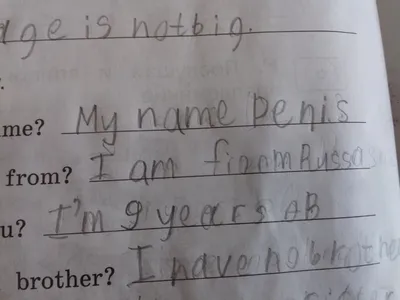 age is not big.
me? My name Denis
from? I am fromm Russa
u? I'm 9 years AB
brother? I have no brothe